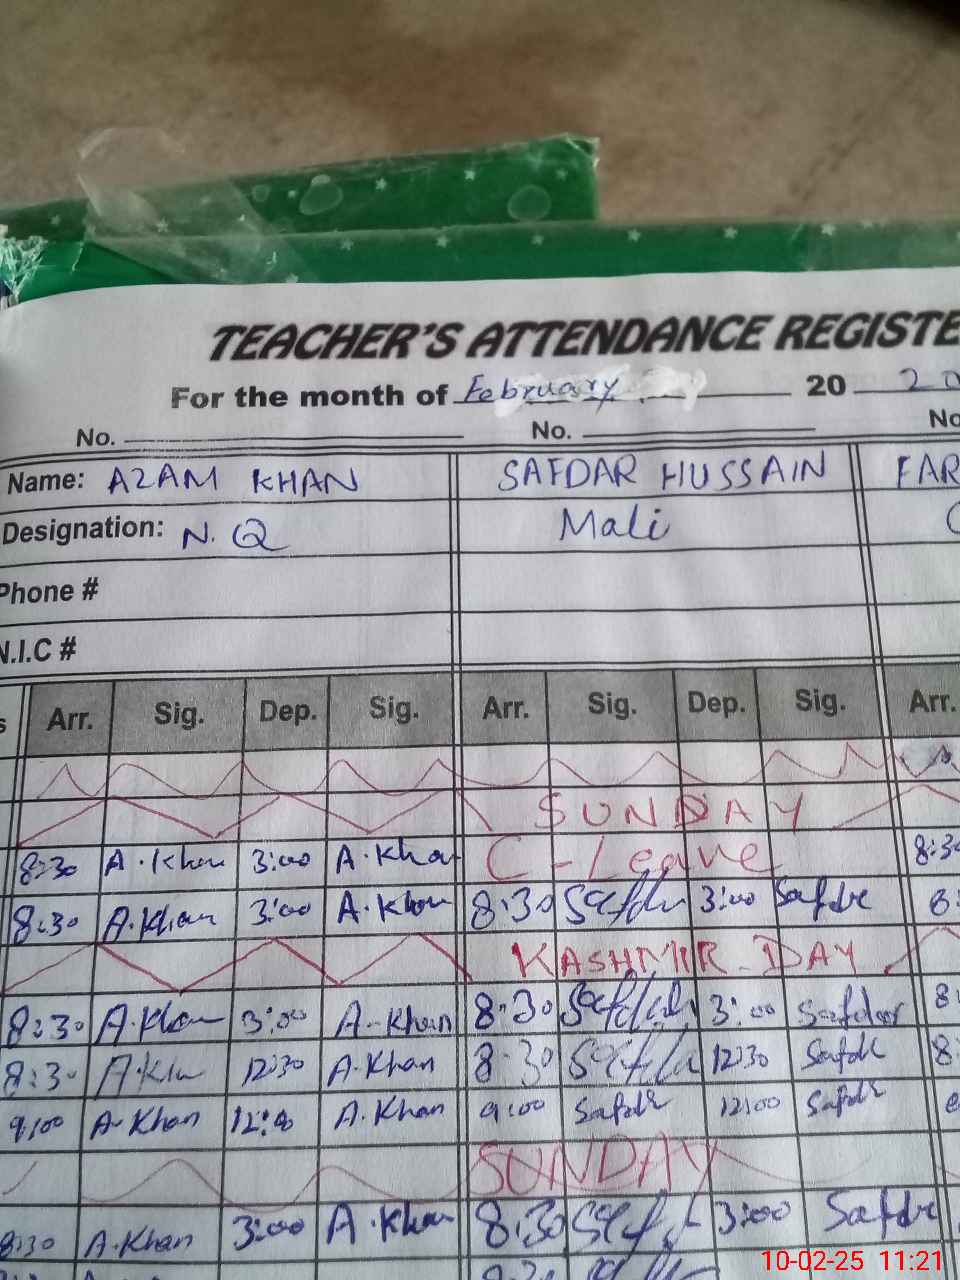 TEACHER'S ATTENDANCE REGISTE
For the month of February 20 20
No. No. No
Name: AZAM KHAN SAFDAR HUSSAIN FAR
Designation: N. Q Mali
Phone #
N.I.C #
s Arr. Sig. Dep. Sig. Arr. Sig. Dep. Sig. Arr.
SUNDAY
8:30 A.Khan 3:00 A.Kha C-Leave 8:30
8:30 A.Khan 3:00 A.Khan 8:30 Safdr 3:00 Safdr 8:
KASHMIR-DAY
8:30 A.Khan 3:00 A-Khan 8:30 3:00 Safdar 8
8:30 A.Kha 12:30 A.Khan 8:30 12:30 Safdr 8:
9:00 A-Khan A.Khan 9:00 Safdr 12:00 Safdr
SUNDAY
8:30 A.Khan 3:00 A.Khan 8:30 3:00 Safdr
8:30
10-02-25 11:21